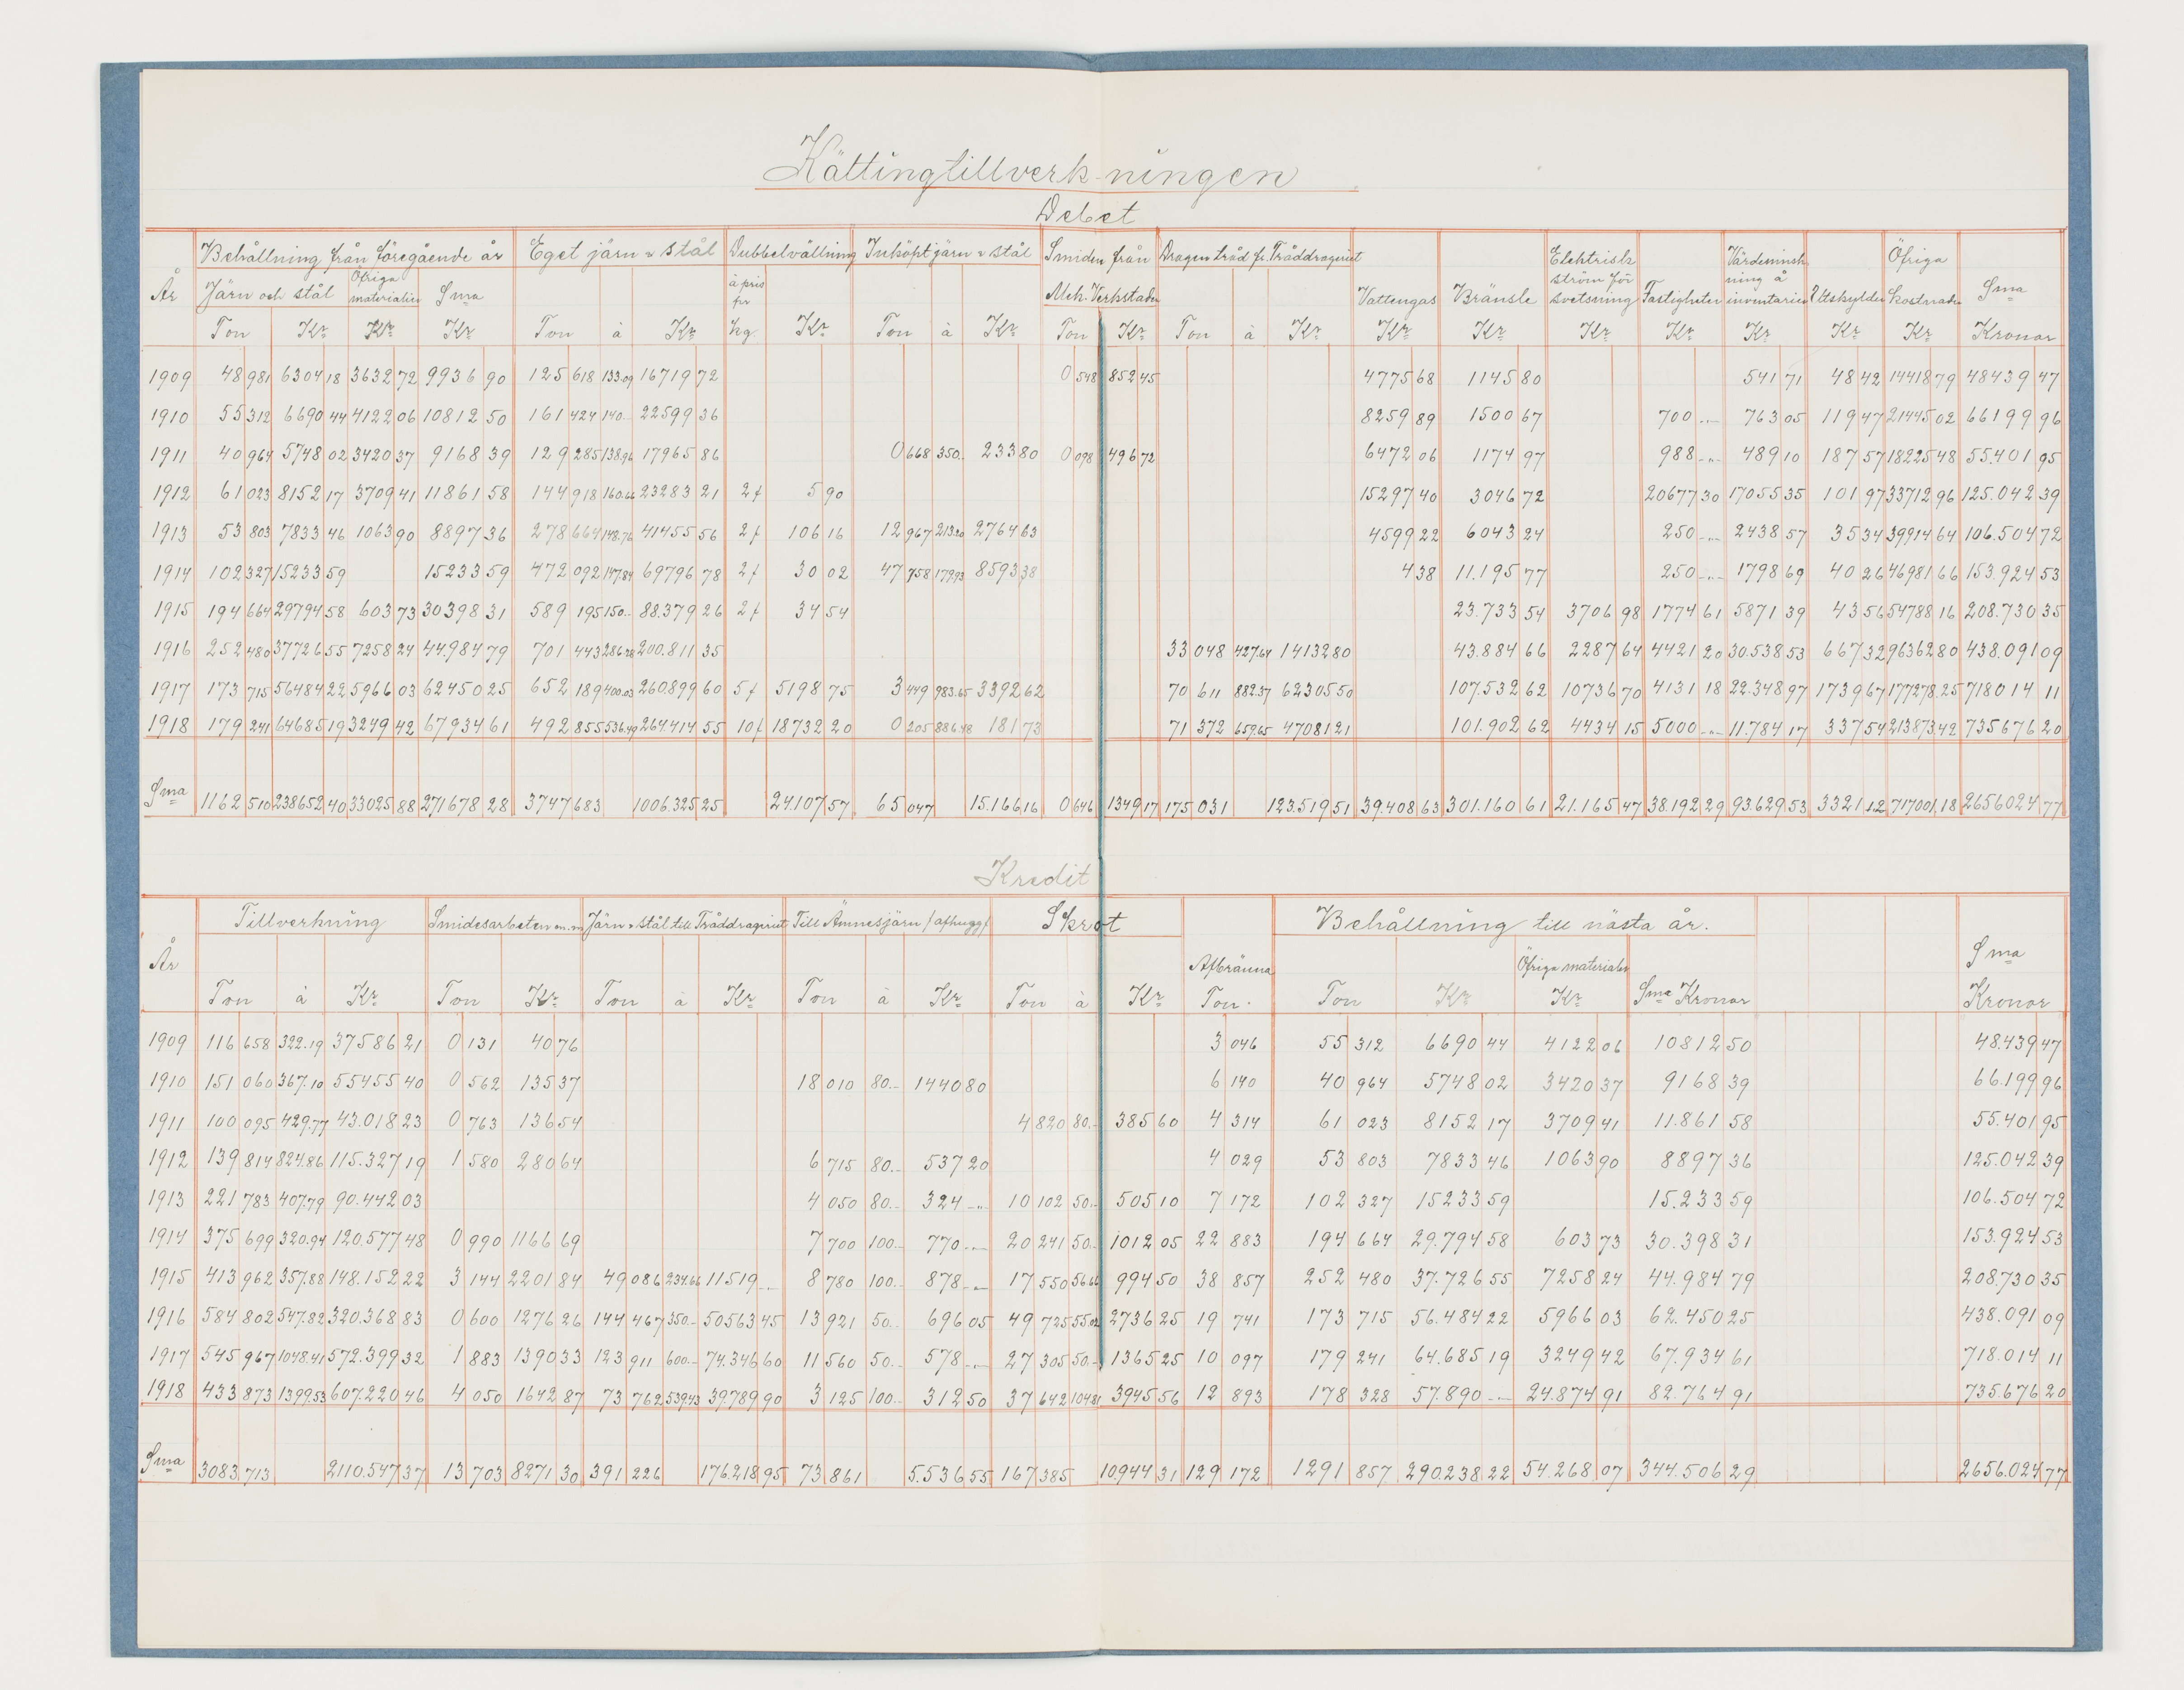 Kättingtillverkningen
Debet
År Behållning från föregående år Eget järn o stål Dubbelvällning Inköpt järn o stål Smiden från Mek. Verkstaden Dragen tråd fr. Tråddrageriet Vattengas Bränsle Elektrisk ström för svetsning Fastigheter Värdeminskning å inventarier Utskylder Öfriga kostnader Sma
Järn och stål Öfriga materialier Sma à pris pr kg
Ton Kr Kr Kr Ton à Kr Kr Ton à Kr Ton Kr Ton à Kr Kr Kr Kr Kr Kr Kr Kr Kronor
1909 48 981 6304 18 3632 72 9936 90 125 618 133.09 16719 72 0 548 852 45 4775 68 1145 80 541 71 48 42 14418 79 48439 47
1910 55 312 6690 44 4122 06 10812 50 161 424 140.- 22599 36 8259 89 1500 67 700 -"- 763 05 119 47 21445 02 66199 96
1911 40 964 5748 02 3420 37 9168 39 129 285 138.96 17965 86 0 668 350.- 233 80 0 098 496 72 6472 06 1174 97 988 -"- 489 10 187 57 18225 48 55.401 95
1912 61 023 8152 17 3709 41 11861 58 144 918 160.66 23283 21 2 f 5 90 15297 40 3046 72 20677 30 17055 35 101 97 33712 96 125.042 39
1913 53 803 7833 46 1063 90 8897 36 278 664 148.76 41455 56 2 f 106 16 12 967 213.20 2764 63 4599 22 6043 24 250 -"- 2438 57 35 34 39914 64 106.504 72
1914 102 327 15233 59 15233 59 472 092 147.84 69796 78 2 f 30 02 47 758 179.93 8593 38 4 38 11.195 77 250 -"- 1798 69 40 26 46981 66 153.924 53
1915 194 664 29794 58 603 73 30398 31 589 195 150.- 88.379 26 2 f 34 54 23.733 54 3706 98 1774 61 5871 39 43 56 54788 16 208.730 35
1916 252 480 37726 55 7258 24 44.984 79 701 443 286.28 200.811 35 33 048 427.64 14132 80 43.884 66 2287 64 4421 20 30.538 53 667 32 96362 80 438.091 09
1917 173 715 56484 22 5966 03 62450 25 652 189 400.03 260.899 60 5 f 5198 75 3 449 983.65 3392 62 70 611 882.37 62305 50 107.532 62 10736 70 4131 18 22.348 97 1739 67 177278.25 718014 11
1918 179 241 64685 19 3249 42 67934 61 492 855 536.49 264414 55 10 f 18732 20 0 205 886.48 181 73 71 372 659.65 47081 21 101.902 62 4434 15 5000 -"- 11.784 17 337 54 213873.42 735676 20
Sma 1162 510 238652 40 33025 88 271678 28 3747 683 1006.325 25 24.107 57 65 047 15.166 16 0 646 1349 17 175 031 123.519 51 39.408 63 301.160 61 21.165 47 38.192 29 93.629 53 3321 12 717001.18 2656024 77
Kredit
År Tillverkning Smidesarbeten m.m Järn o stål till Tråddrageriet Till Ämnesjärn /afhugg/ Skrot Afbränna Behållning till nästa år. Sma
Öfriga materialer
Ton à Kr Ton Kr Ton à Kr Ton à Kr Ton à Kr Ton. Ton Kr Kr Sma Kronor Kronor
1909 116 658 322.19 37586 21 0 131 40 76 3 046 55 312 6690 44 4122 06 10812 50 48.439 47
1910 151 060 367.10 55455 40 0 562 135 37 18 010 80.- 1440 80 6 140 40 964 5748 02 3420 37 9168 39 66.199 96
1911 100 095 429.77 43.018 23 0 763 136 54 4 820 80.- 385 60 4 314 61 023 8152 17 3709 41 11.861 58 55.401 95
1912 139 814 824.86 115.327 19 1 580 280 64 6 715 80.- 537 20 4 029 53 803 7833 46 1063 90 8897 36 125.042 39
1913 221 783 407.79 90.442 03 4 050 80.- 324 -"- 10 102 50.- 505 10 7 172 102 327 15233 59 15.233 59 106.504 72
1914 375 699 320.94 120.577 48 0 990 1166 69 7 700 100.- 770 -"- 20 241 50.- 1012 05 22 883 194 664 29.794 58 603 73 30.398 31 153.924 53
1915 413 962 357.88 148.152 22 3 144 2201 84 49 086 234.66 11519 -"- 8 780 100.- 878 -"- 17 550 56.66 994 50 38 857 252 480 37.726 55 7258 24 44.984 79 208.730 35
1916 584 802 547.82 320.368 83 0 600 1276 26 144 467 350.- 50563 45 13 921 50.- 696 05 49 725 55.02 2736 25 19 741 173 715 56.484 22 5966 03 62.450 25 438.091 09
1917 545 967 1048.41 572.399 32 1 883 1390 33 123 911 600.- 74.346 60 11 560 50.- 578 -"- 27 305 50.- 1365 25 10 097 179 241 64.685 19 3249 42 67.934 61 718.014 11
1918 433 873 1399.53 607.220 46 4 050 1642 87 73 762 539.43 39.789 90 3 125 100.- 312 50 37 642 104.81 3945 56 12 893 178 328 57.890 -"- 24.874 91 82.764 91 735.676 20
Sma 3083 713 2110.547 37 13 703 8271 30 391 226 176.218 95 73 861 5.536 55 167 385 10944 31 129 172 1291 857 290.238 22 54.268 07 344.506 29 2656.024 77